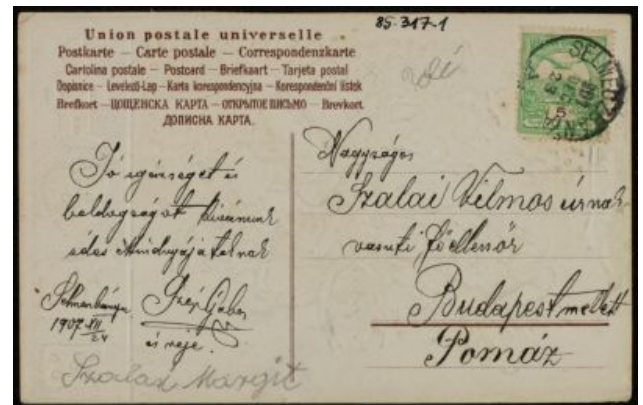 85-317-1
Union postale universelle
Postkarte – Carte postale – Correspondenzkarte
Cartolina postale – Postcard – Briefkaart – Tarjeta postal
Dopisnice – Levelező-Lap – Karta korespondencyjna – Korespondenční lístek
Brefkort – ЦОЩЕНСКА КАРТА – ОТКРЫТОЕ ПИСЬМО – Brevkort
ДОПИСНА КАРТА.
Jó egészséget és
boldogságot kívánunk
édes mindnyájatoknak
Selmecbánya
1907 XII/24
Szép Gábor
és neje.
Szalai Margit
Nagyságos
Szalai Vilmos úrnak
vasuti főellenőr
Budapest mellett
Pomáz